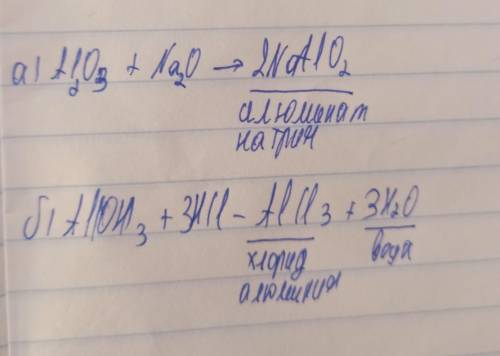 а) Al₂O₃ + Na₂O → 2NaAlO₂
алюминат
натрия
б) Al(OH)₃ + 3HCl - AlCl₃ + 3H₂O
хлорид вода
алюминия